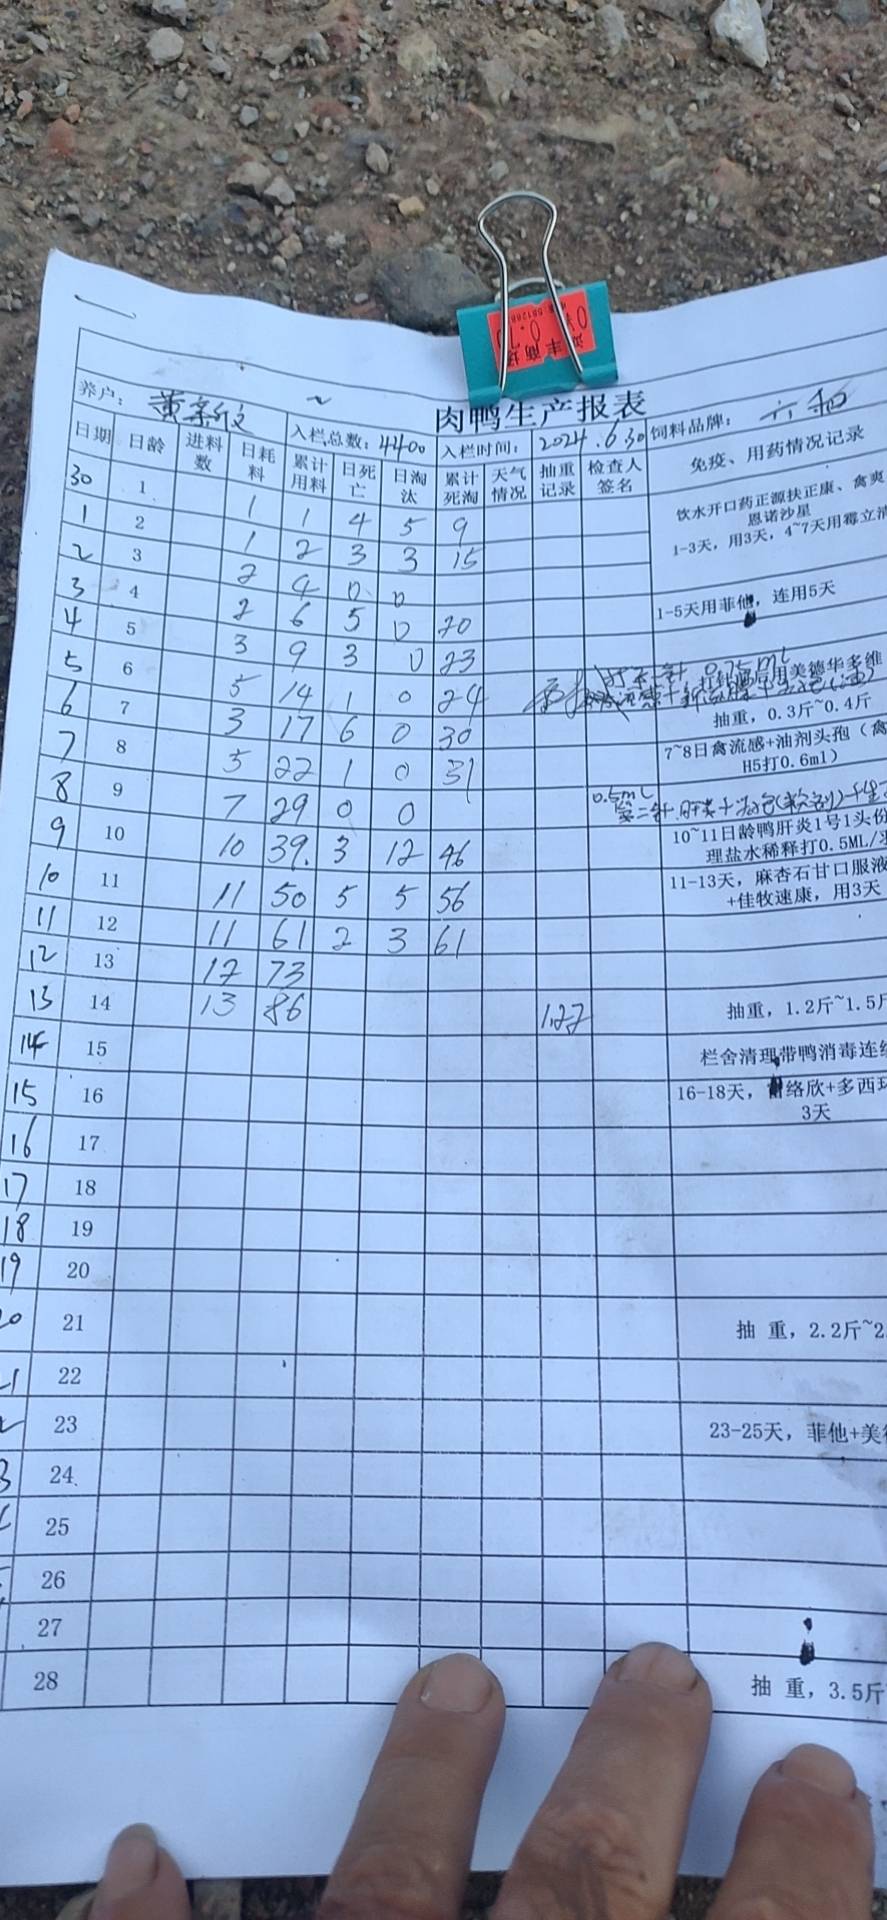 肉鸭生产报表
养户: 黄 入栏总数: 4400 入栏时间: 2024.6.30 饲料品牌: 六和
日期 日龄 进料数 日耗料 累计用料 日死亡 日淘汰 累计死淘 天气情况 抽重记录 检查人签名 免疫、用药情况记录
30 1 1 1 4 5 9 饮水开口药正源扶正康、禽爽
恩诺沙星
1 2 1 2 3 3 15 1-3天, 用3天, 4~7天用霉立消
2 3 2 4 0 0
3 4 2 6 5 0 20 1-5天用菲他, 连用5天
4 5 3 9 3 0 23
打第一针 0.75ml
5 6 5 14 1 0 24 打针前后用美德华多维
6 7 3 17 6 0 30 抽重, 0.3斤~0.4斤
7 8 5 22 1 0 31 7~8日禽流感+油剂头孢 (禽
H5打0.6ml)
0.5mL
8 9 7 29 0 0 第二针
9 10 10 39. 3 12 46 10~11日龄鸭肝炎1号1头份
理盐水稀释打0.5ML/
10 11 11 50 5 5 56 11-13天, 麻杏石甘口服液
+佳牧速康, 用3天
11 12 11 61 2 3 61
12 13 12 73
13 14 13 86 1.27 抽重, 1.2斤~1.5斤
14 15 栏舍清理带鸭消毒连
15 16 16-18天, 络欣+多西环
3天
16 17
17 18
18 19
19 20
20 21 抽 重, 2.2斤~2.
21 22
23 23-25天, 菲他+美
24
25
26
27
28 抽 重, 3.5斤